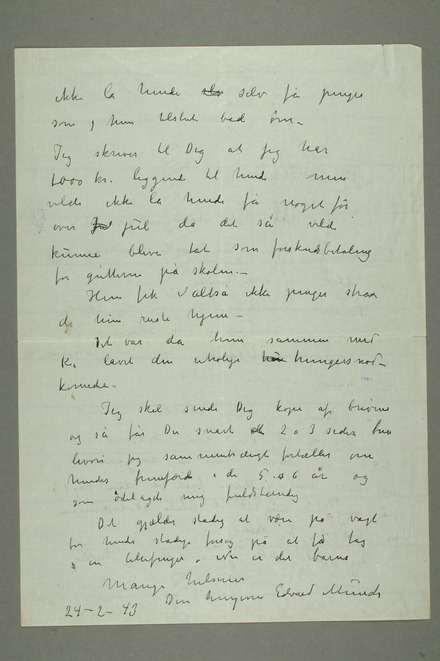 ikke la hende selv få penger
som hun bad om –
Jeg skriver til Dig at jeg har
1000 kr. liggende til hende men
vilde ikke la hende få noget før
over jul da det så vild
kunne blive tat som forskudsbetaling
for gutterne på skolen. –
Hun fik altså ikke penger straa
da hun reiste hjem –
Det var da hun sammen med
K. lavet den uhellige hungersnød-
komedie –
Jeg skal sende Dig kopi af brevene
og så får Du snart 2 a 3 sider
hvori jeg sammentrængt fortæller om
hendes fremfærd i de 5 a 6 år og
som ödelagde mig fuldstændig
Det gjælder stadig at være på vagt
for hendes stadige forsøg på at få tag
i en – Nu er det barne
Mange hilsener
Din hengivne Edvard Munch
24-2-43